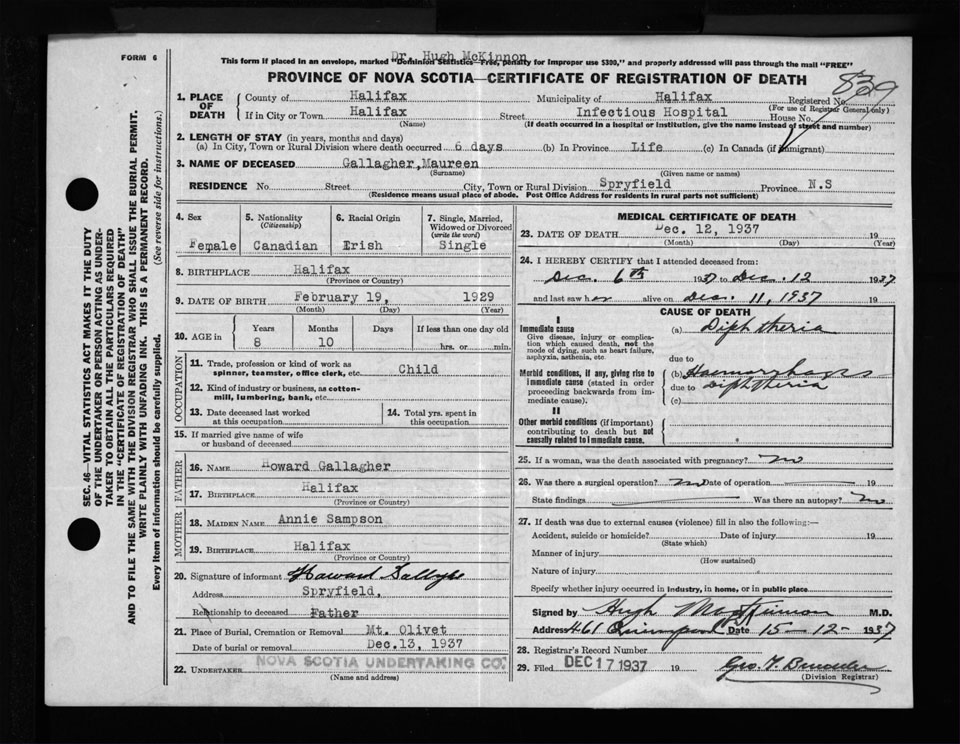 FORM 6
Dr. Hugh McKinnon
This form if placed in an envelope, marked "Dominion Statistics—Free, penalty for improper use $300," and properly addressed will pass through the mail "FREE"
PROVINCE OF NOVA SCOTIA—CERTIFICATE OF REGISTRATION OF DEATH
829
1. PLACE OF DEATH
County of Halifax Municipality of Halifax Registered No.
(For use of Registrar General only)
If in City or Town Halifax Street Infectious Hospital House No.
(Name) (If death occurred in a hospital or institution, give the name instead of street and number)
2. LENGTH OF STAY (in years, months and days)
(a) In City, Town or Rural Division where death occurred 6 days (b) In Province Life (c) In Canada (if immigrant)
3. NAME OF DECEASED Gallagher, Maureen
(Surname) (Given name or names)
RESIDENCE No. Street City, Town or Rural Division Spryfield Province N.S
(Residence means usual place of abode. Post Office Address for residents in rural parts not sufficient)
SEC. 46—VITAL STATISTICS ACT MAKES IT THE DUTY
OF THE UNDERTAKER OR PERSON ACTING AS UNDER-
TAKER TO OBTAIN ALL THE PARTICULARS REQUIRED
IN THE "CERTIFICATE OF REGISTRATION OF DEATH"
AND TO FILE THE SAME WITH THE DIVISION REGISTRAR WHO SHALL ISSUE THE BURIAL PERMIT.
WRITE PLAINLY WITH UNFADING INK. THIS IS A PERMANENT RECORD.
Every item of information should be carefully supplied. (See reverse side for instructions.)
4. Sex
Female
5. Nationality
(Citizenship)
Canadian
6. Racial Origin
Irish
7. Single, Married,
Widowed or Divorced
(write the word)
Single
8. BIRTHPLACE Halifax
(Province or Country)
9. DATE OF BIRTH February 19, 1929
(Month) (Day) (Year)
10. AGE in
Years Months Days If less than one day old
8 10 hrs. or min.
OCCUPATION
11. Trade, profession or kind of work as
spinner, teamster, office clerk, etc. Child
12. Kind of industry or business, as cotton-
mill, lumbering, bank, etc.
13. Date deceased last worked
at this occupation
14. Total yrs. spent in
this occupation
15. If married give name of wife
or husband of deceased
FATHER
16. NAME Howard Gallagher
17. BIRTHPLACE Halifax
(Province or Country)
MOTHER
18. MAIDEN NAME Annie Sampson
19. BIRTHPLACE Halifax
(Province or Country)
20. Signature of informant Howard
Address Spryfield,
Relationship to deceased Father
21. Place of Burial, Cremation or Removal Mt. Olivet
Date of burial or removal Dec.13, 1937
22. UNDERTAKER NOVA SCOTIA UNDERTAKING CO.
(Name and address)
MEDICAL CERTIFICATE OF DEATH
23. DATE OF DEATH Dec. 12, 1937 19
(Month) (Day) (Year)
24. I HEREBY CERTIFY that I attended deceased from:
Dec. 6th 1937 to Dec. 12 1937
and last saw her alive on Dec. 11, 1937 19
CAUSE OF DEATH
I
Immediate cause
Give disease, injury or complica-
tion which caused death, not the
mode of dying, such as heart failure,
asphyxia, asthenia, etc.
(a) Diphtheria
due to
Morbid conditions, if any, giving rise to
immediate cause (stated in order
proceeding backwards from im-
mediate cause).
(b) Haemorrhages
due to Diphtheria
(c)
II
Other morbid conditions (if important)
contributing to death but not
causally related to immediate cause.
25. If a woman, was the death associated with pregnancy? no
26. Was there a surgical operation? no Date of operation 19
State findings Was there an autopsy? no
27. If death was due to external causes (violence) fill in also the following:—
Accident, suicide or homicide? Date of injury 19
(State which)
Manner of injury
(How sustained)
Nature of injury
Specify whether injury occurred in industry, in home, or in public place
Signed by Hugh McKinnon M.D.
Address 461 Date 15-12- 1937
28. Registrar's Record Number
29. Filed DEC 17 1937 19
Geo.
(Division Registrar)